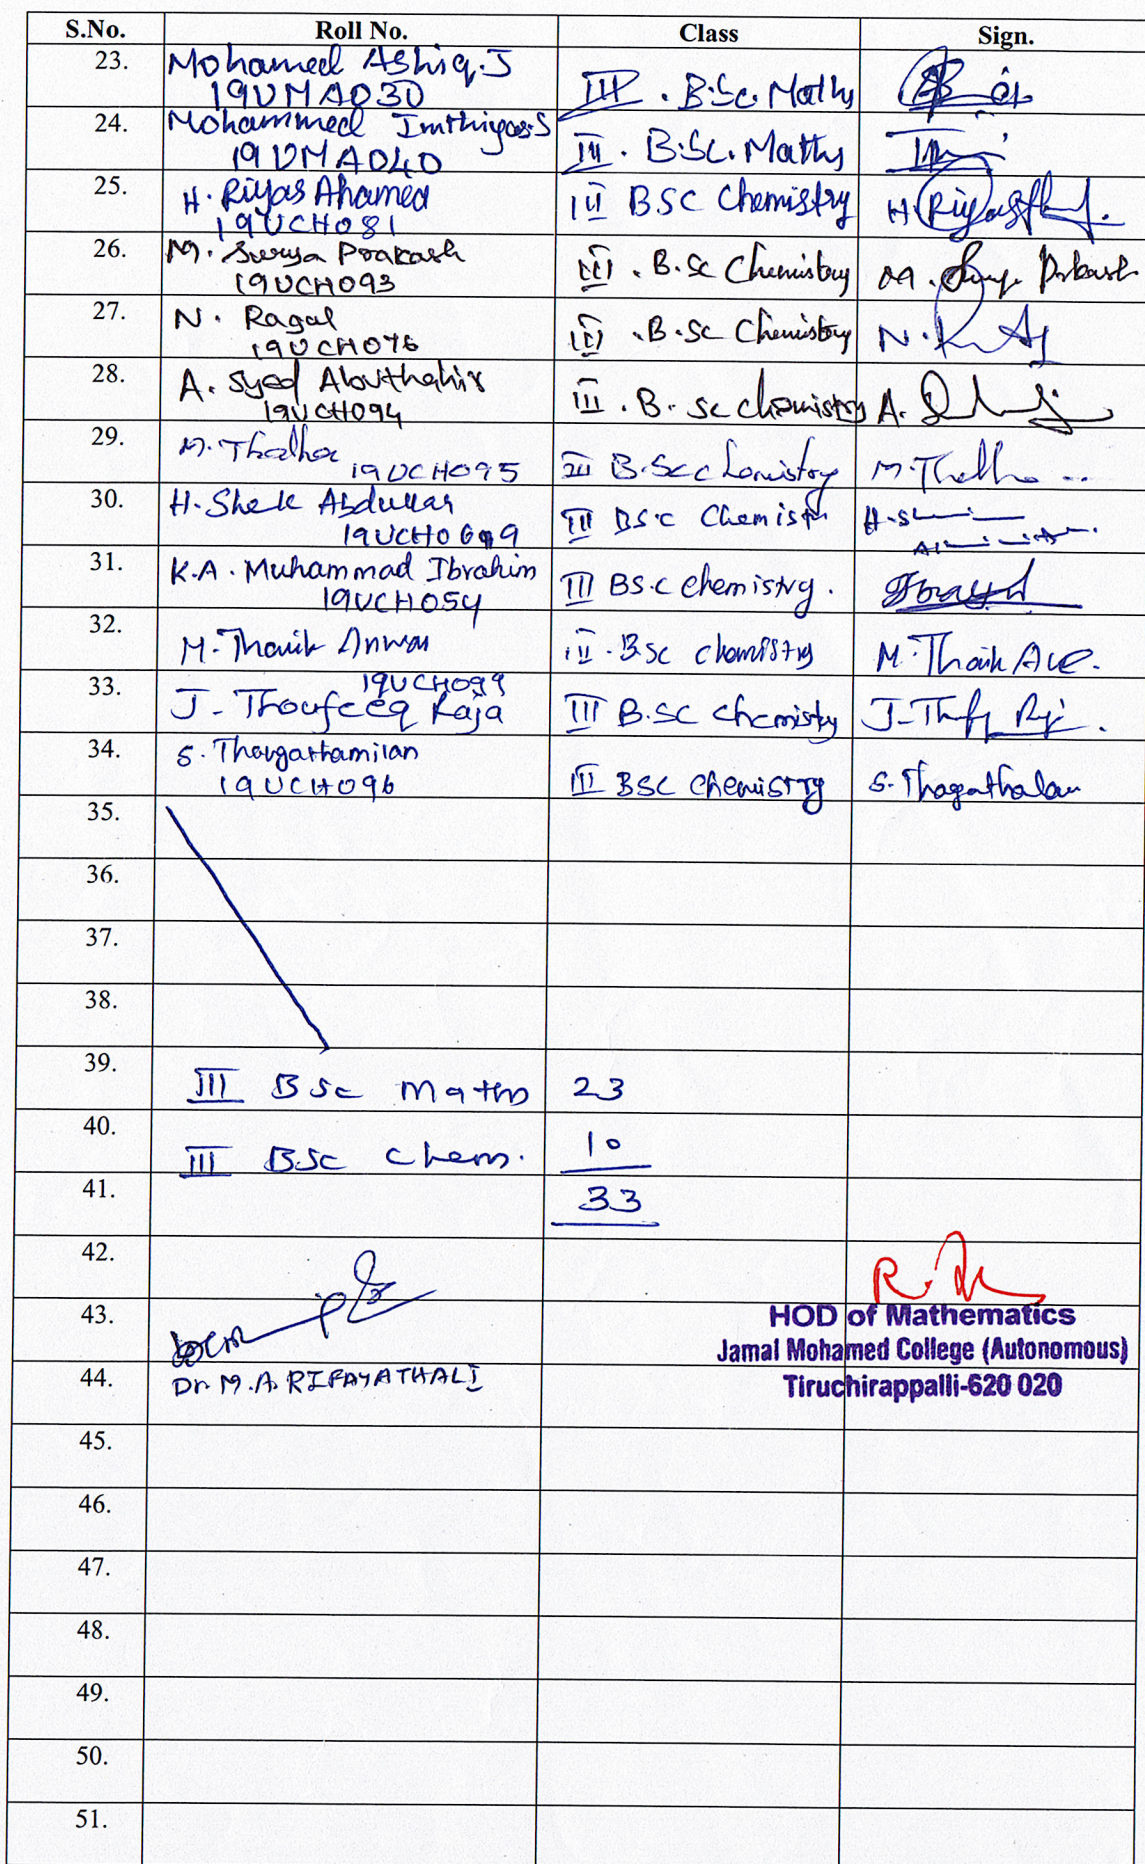 S.No. Roll No. Class Sign.
23. Mohamed Ashiq.J
19UMA030 III . B.Sc. Maths
24. Mohammed Imthiyas.S
19UMA040 III . B.Sc. Maths
25. H. Riyas Ahamed
19UCH081 III BSC Chemistry H. Riyas
26. M. Surya Prakash
19UCH093 III . B.Sc Chemistry M. Surya Prakash
27. N. Ragal
19UCH076 III . B.Sc Chemistry N.
28. A. Syed Abuthahir
19UCH094 III . B. Sc chemistry A.
29. M. Thalha
19UCH095 III B.Sc chemistry M. Thalha
30. H. Shek Abdullah
19UCH0 III BS.C Chemistry H.
31. K.A. Muhammad Ibrahim
19UCH054 III BS.C chemistry.
32. M. Tharik Anwar III . B.Sc chemistry M. Tharik
33. 19UCH099
J. Thoufeeq Raja III B.SC chemistry J.
34. S. Thangathamilan
19UCH096 III BSC chemistry S.
35.
36.
37.
38.
39. III BSc Maths 23
40. III BSc Chem. 10
41. 33
42. R.
43. HOD of Mathematics
Jamal Mohamed College (Autonomous)
44. Dr. M.A. RIFAYATHALI Tiruchirappalli-620 020
45.
46.
47.
48.
49.
50.
51.